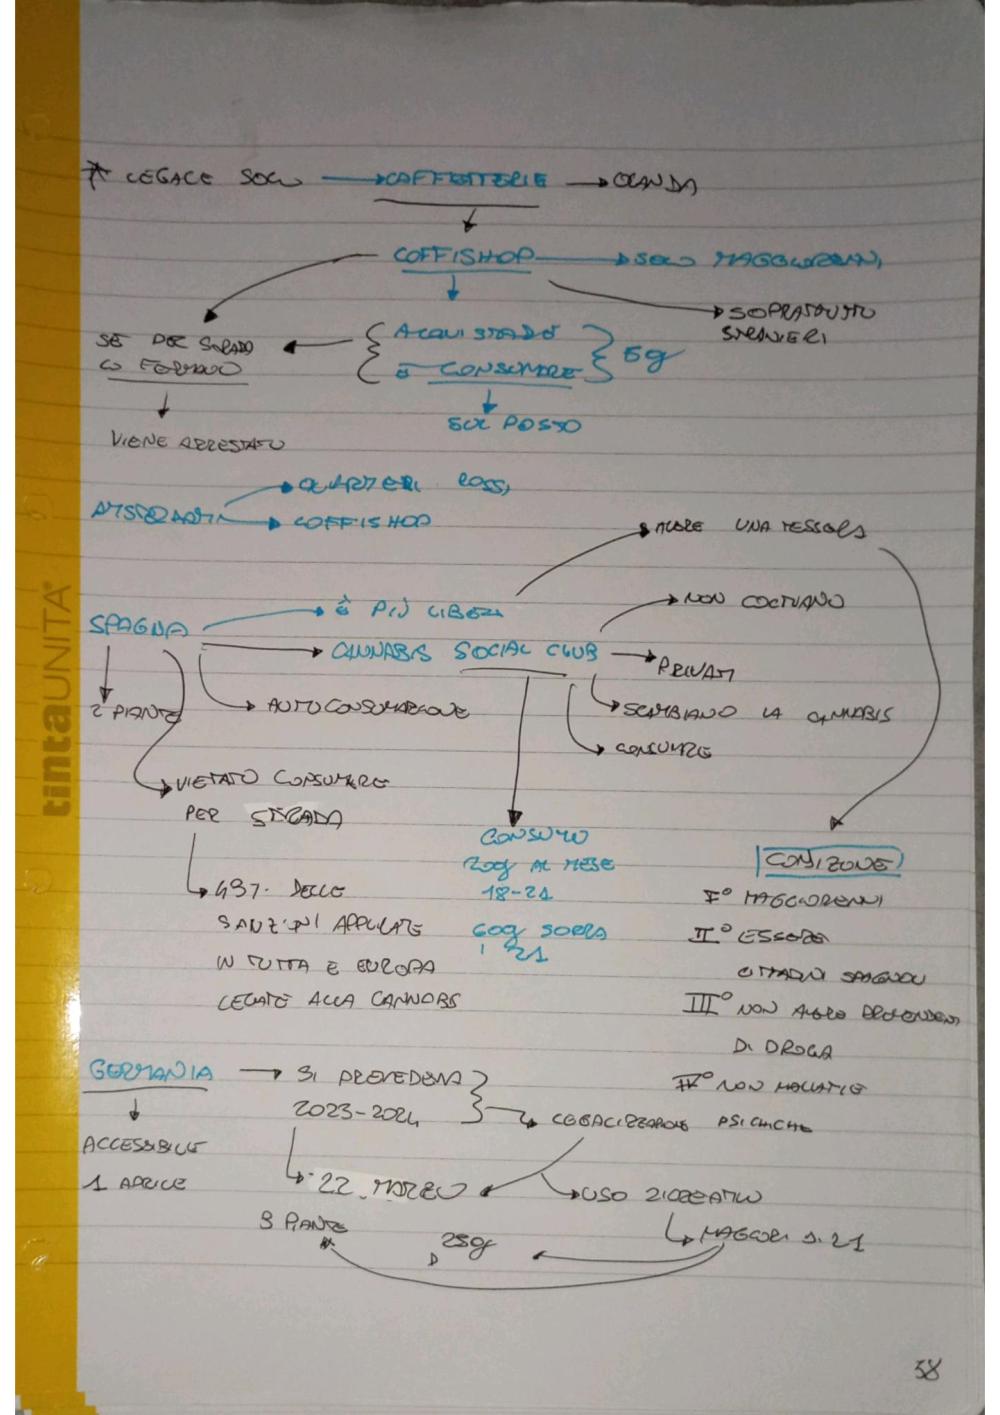 LEGALE SOLO → CAFFETTERIE → OLANDA
COFFISHOP → SOLO MAGGIORENNI
SOPRATTUTTO
STRANIERI
SE PER STRADA
LO FERMANO
ACQUISTADO
E CONSUMARE
5g
SUL POSTO
VIENE ARRESTATO
QUARTIERI ROSSI
AMSTERDAM → COFFISHOP
AVERE UNA TESSERA
È PIÙ LIBERA
NON COLTIVANO
SPAGNA
CANNABIS SOCIAL CLUB → PRIVATI
2 PIANTE
AUTOCONSUMAZIONE
SCAMBIANO LA CANNABIS
CONSUMARE
VIETATO CONSUMARE
PER STRADA
CONSUMO
20g AL MESE
18-21
60g SOPRA
i 21
CONDIZONE
I° MAGGIORENNI
II° ESSERE
CITTADINI SPAGNOLI
III° NON AVERE
DI DROGA
IV° NON MALLATIE
PSICHICHE
DELLE
SANZIONI APPLICATE
IN TUTTA E EUROPA
LEGATE ALLA CANNABIS
GERMANIA → SI PREVEDEVA
2023-2024
ACCESSIBILE
1 APRILE
22 MARZO
USO RICREATIVO
3 PIANTE
25g
MAGGIORI DI 21
58
tintaUNITA®